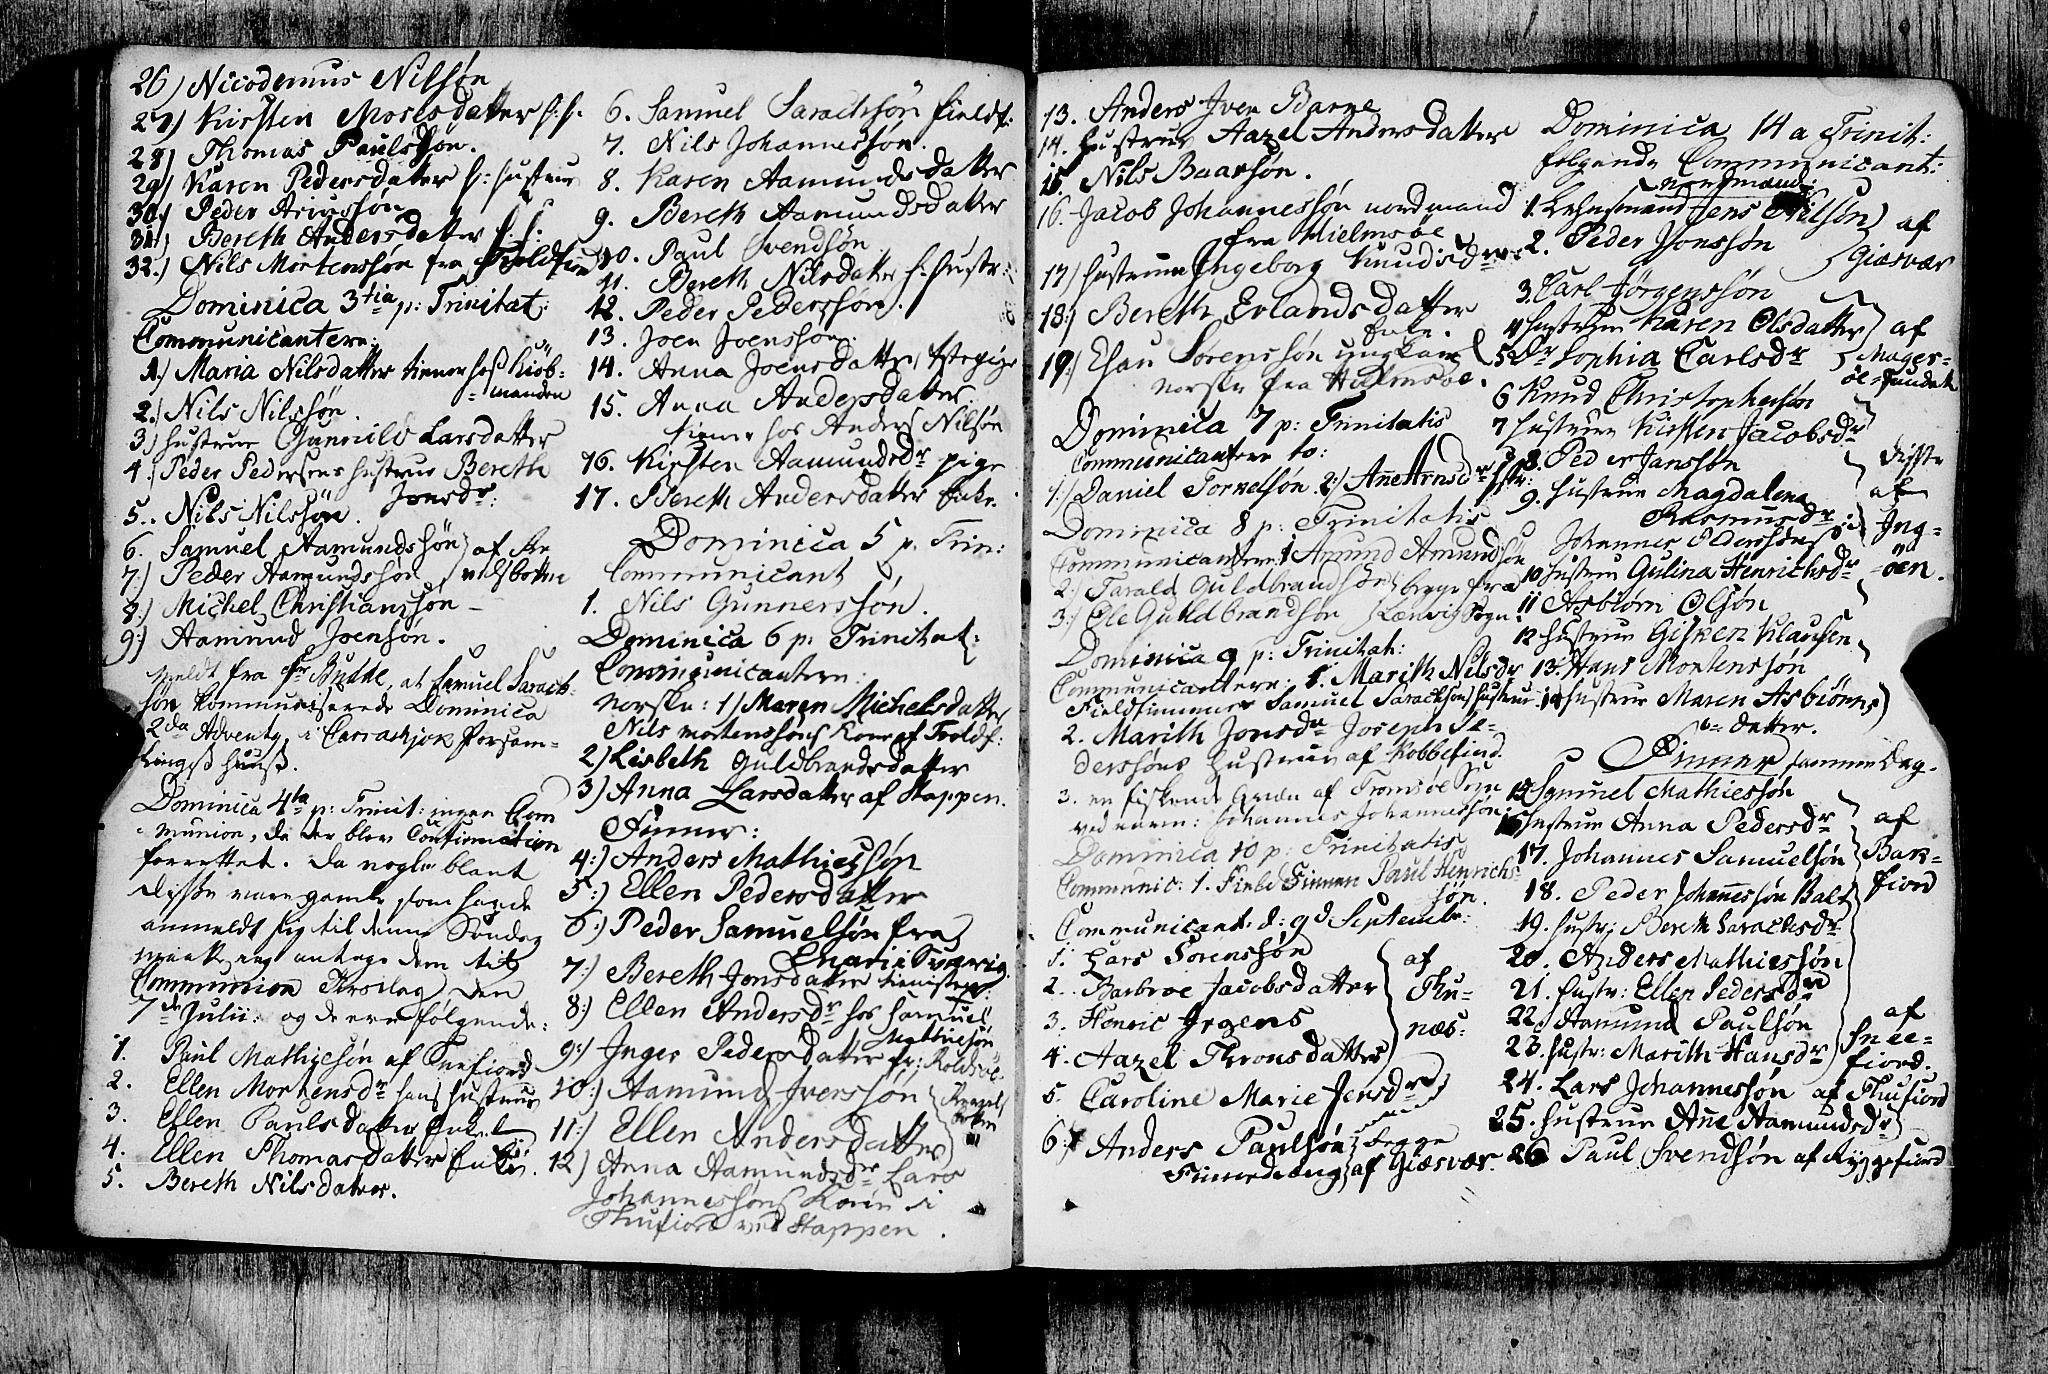 26) Nicodemus Nilsøn
27) Kirsten Mosesdatter h: h.
28) Thomas Paulsøn.
29) Karen Pedersdatter h: hustrue
30.) Peder Ariussøn
31.) Bereth Andersdatter
32.) Nils Mortenssøn fra
Dominica 3tia p: Trinitat:
Communicantere:
1.) Maria Nilsdatter tiener hoß Kiöb-
=manden
2.) Nils Nilssøn.
3) hustrue Gunnild Larsdatter
4.) Peder Pedersens hustrue Bereth
Jonsdr:
5.. Nils Nilssøn.
6. Samuel Aamundssøn af
7.) Peder Aamundssøn
8.) Michel Christianssøn
9.) Aamund Joensøn.
meldt fra Hr Buttke, at Samuel Sarach-
søn kommuniserede Dominica
2da Advent, i Carrashjok forsam-
lingß huuß.
Dominica 4ta p: Trinit: ingen Com
munion, da der blev Confirmation
forrettet. da nogle blant
disse vare gamle som havde
anmeldt sig til denne Søndag
maatte jeg antage dem til
Communion Tirsdag den
7de Julii. og de ere følgende:
1. Paul Mathiesøn af
2. Ellen Mortensdr hans hustrue
3. Ellen Paulsdatter Enke
4. Ellen Thomasdatter Enke.
5. Bereth Nilsdatter.
6. Samuel Sarachsøn fieldf:
7. Nils Johannessøn.
8. Karen Aamundsdatter
9. Bereth Aamundsdatter
10. Paul Svendsøn
11. Bereth Nilsdatter h: hustr:
12. Peder Pederssøn.
13. Joen Joenssøn.
14. Anna Joensdatter,
15. Anna Andersdatter.
tiener hos Anders Nilsøn
16. Kirsten Aamundsdr pige
17. Bereth Andersdatter Enke.
Dominica 5 p. Trin:
Communicant
1. Nils Gunnerssøn.
Dominica 6 p: Trinitat:
Communicantere:
norske: 1) Maren Michelsdatter,
Nils Mortenssøns Kone af Troldf:
2) Lisbeth Guldbrandsdatter
3) Anna Larsdatter af Stappen.
Finner:
4:) Anders Mathiessøn
5:) Ellen Pedersdatter
6:) Peder Samuelsøn fra
7:) Bereth Jonsdatter
8:) Ellen Andersdr hos Samuel
Mathiesøn
9:) Inger Pedersdatter fr:
10:) Aamund Iverssøn
11:) Ellen Andersdatter
12) Anna Aamundsdr Lars
Johannessøns Kone i
Thufiord ved Stappen.
13. Anders Iver Barne
14. hustrue Aazel Andersdatter
15. Nils Baarsøn.
16. Jacob Johannessøn nordmand
fra Hielmsøe
17) hustrue Ingeborg Knudsdr
18:) Bereth Erlandsdatter
Enke.
19:) Esau Sørenssøn ungkarl
norsk fra Hielmsøe.
Dominica 7 p: Trinitatis
Communicantere to:
1:) Daniel Torvelsøn. 2:) Ane Arnsdr
Dominica 8 p: Trinitatis
Communicantere: 1 Amund Amundsøn
2.) Tarald Guldbrandsøn begge fra
3.) Ole Guldbrandsøn Lenvig Sogn
Dominica 9 p: Trinitat:
Communicantere: 1. Marith Nilsdr
Fieldfinnnes Samuel Sarachsøns hustrue
2. Marith Jonsdr Joseph Pe-
derssøns hustrue af Kobbefiord.
3. en fiskende af Tromsøe Sogn
ved navn: Johannes Johannessøn.
Dominica 10 p: Trinitatis
Communic: 1. Finnen Paul Henrich-
søn.
Communicant. d: 9d Septembr:
1. Lars Sørenssøn
2. Barbroe Jacobsdatter
3. Henric Irgens
4. Aazel Thronsdatter
af
Thu-
næs:
5. Caroline Marie Jensdr
6. Anders Paulsøn begge
Finnedreng af Giæsvær.
Dominica 14 a Trinit:
følgende Communicant:
nordmænd
1. Lehnsmand Jens Nilsøn af
2. Peder Jonssøn Giæsvær
3. Carl Jørgenssøn
4 hustrue Karen Olsdatter af
5 Dr Sophia Carlsdr Mager-
öe-sundet
6 Knud Christophersøn
7 hustrue Kirsten Jacobsdr
8. Peder Janssøn
9. hustrue Magdalena
Rasmusdr
disse
af
Ing-
öen.
Johannes Pederssøns
10 hustrue Gulina Henrichsdr
11 Asbiørn Olsøn
12 hustrue Gisken Klausen
13. Hans Mortenssøn
14 hustrue Maren Asbiörns
datter.
Finner samme Dag.
15 Samuel Mathiessøn
16 hustrue Anna Pedersdr af
17. Johannes Samuelsøn Bak-
18. Peder Johannessøn Balt fiord
19. hustr: Bereth Sarachsdr
20. Anders Mathiessøn
21. hustr: Ellen Pedersdr
22. Aamund Paulsøn af
23. hustr: Marith Hansdr Snee-
fiord.
24. Lars Johannessøn af Thufiord
25. hustrue Ane Aamundsdr
26 Paul Svendsøn af Ryggefiord